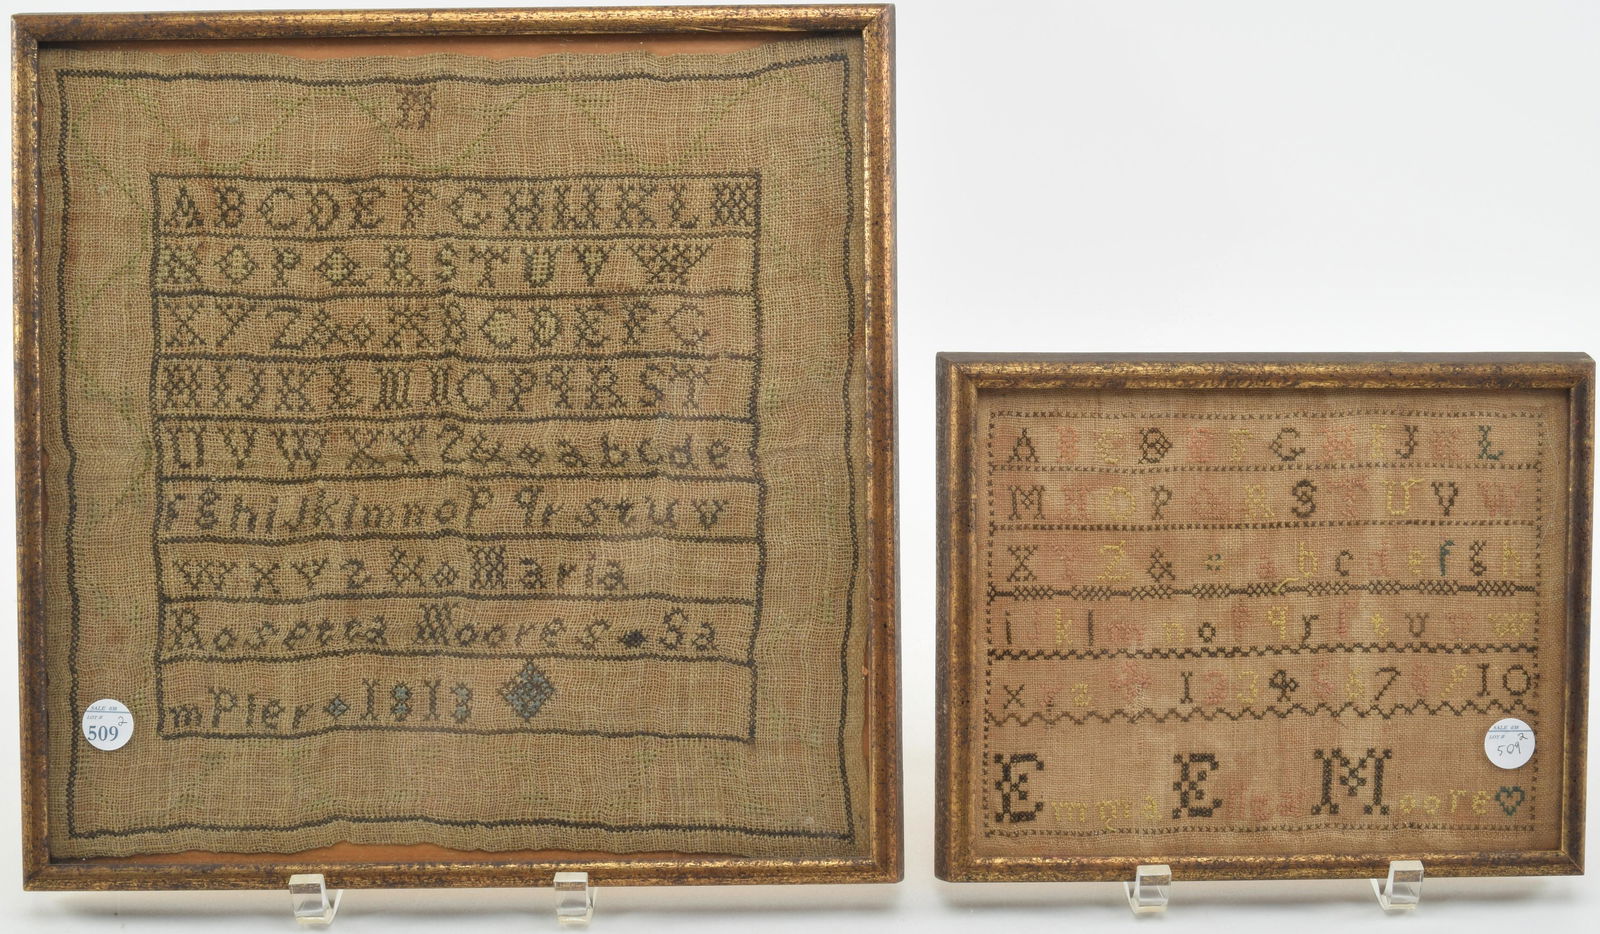 A B C D E F G H I J K L M
N O P Q R S T U V W
X Y Z & A B C D E F G
H I J K L M N O P q R S T
U V W X Y Z & a b c d e
f g h i J k l m n o p q r s t u v
w x y z & Maria
Rosetta Moores Sa
mpler 1813
SALE 038
LOT #
509 2
A B C D E F G H I J K L
M N O P Q R S T U V W
X Y Z & a b c d e f g h
i j k l m n o p q r s t u v w
x y z & 1 2 3 4 5 6 7 8 9 10
Emma E Moore
SALE 038
LOT #
509 2